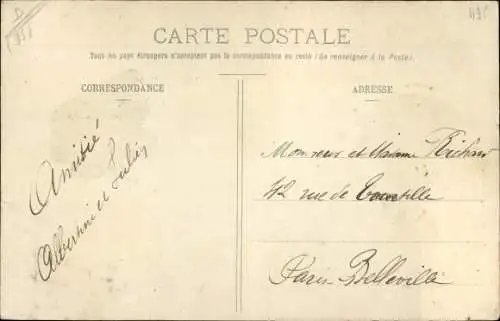 CARTE POSTALE
Tous les pays étrangers n'acceptent pas la correspondance au recto (Se renseigner à la Poste)
CORRESPONDANCE
ADRESSE
Amitié
Albertine et Julien
Monsieur et Madame Richard
42 rue de
Paris Belleville